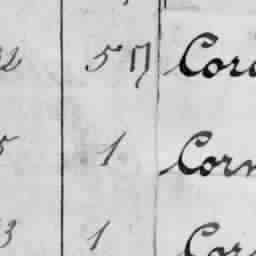 2 57 Cor
5 1 Corn
3 1 Cor